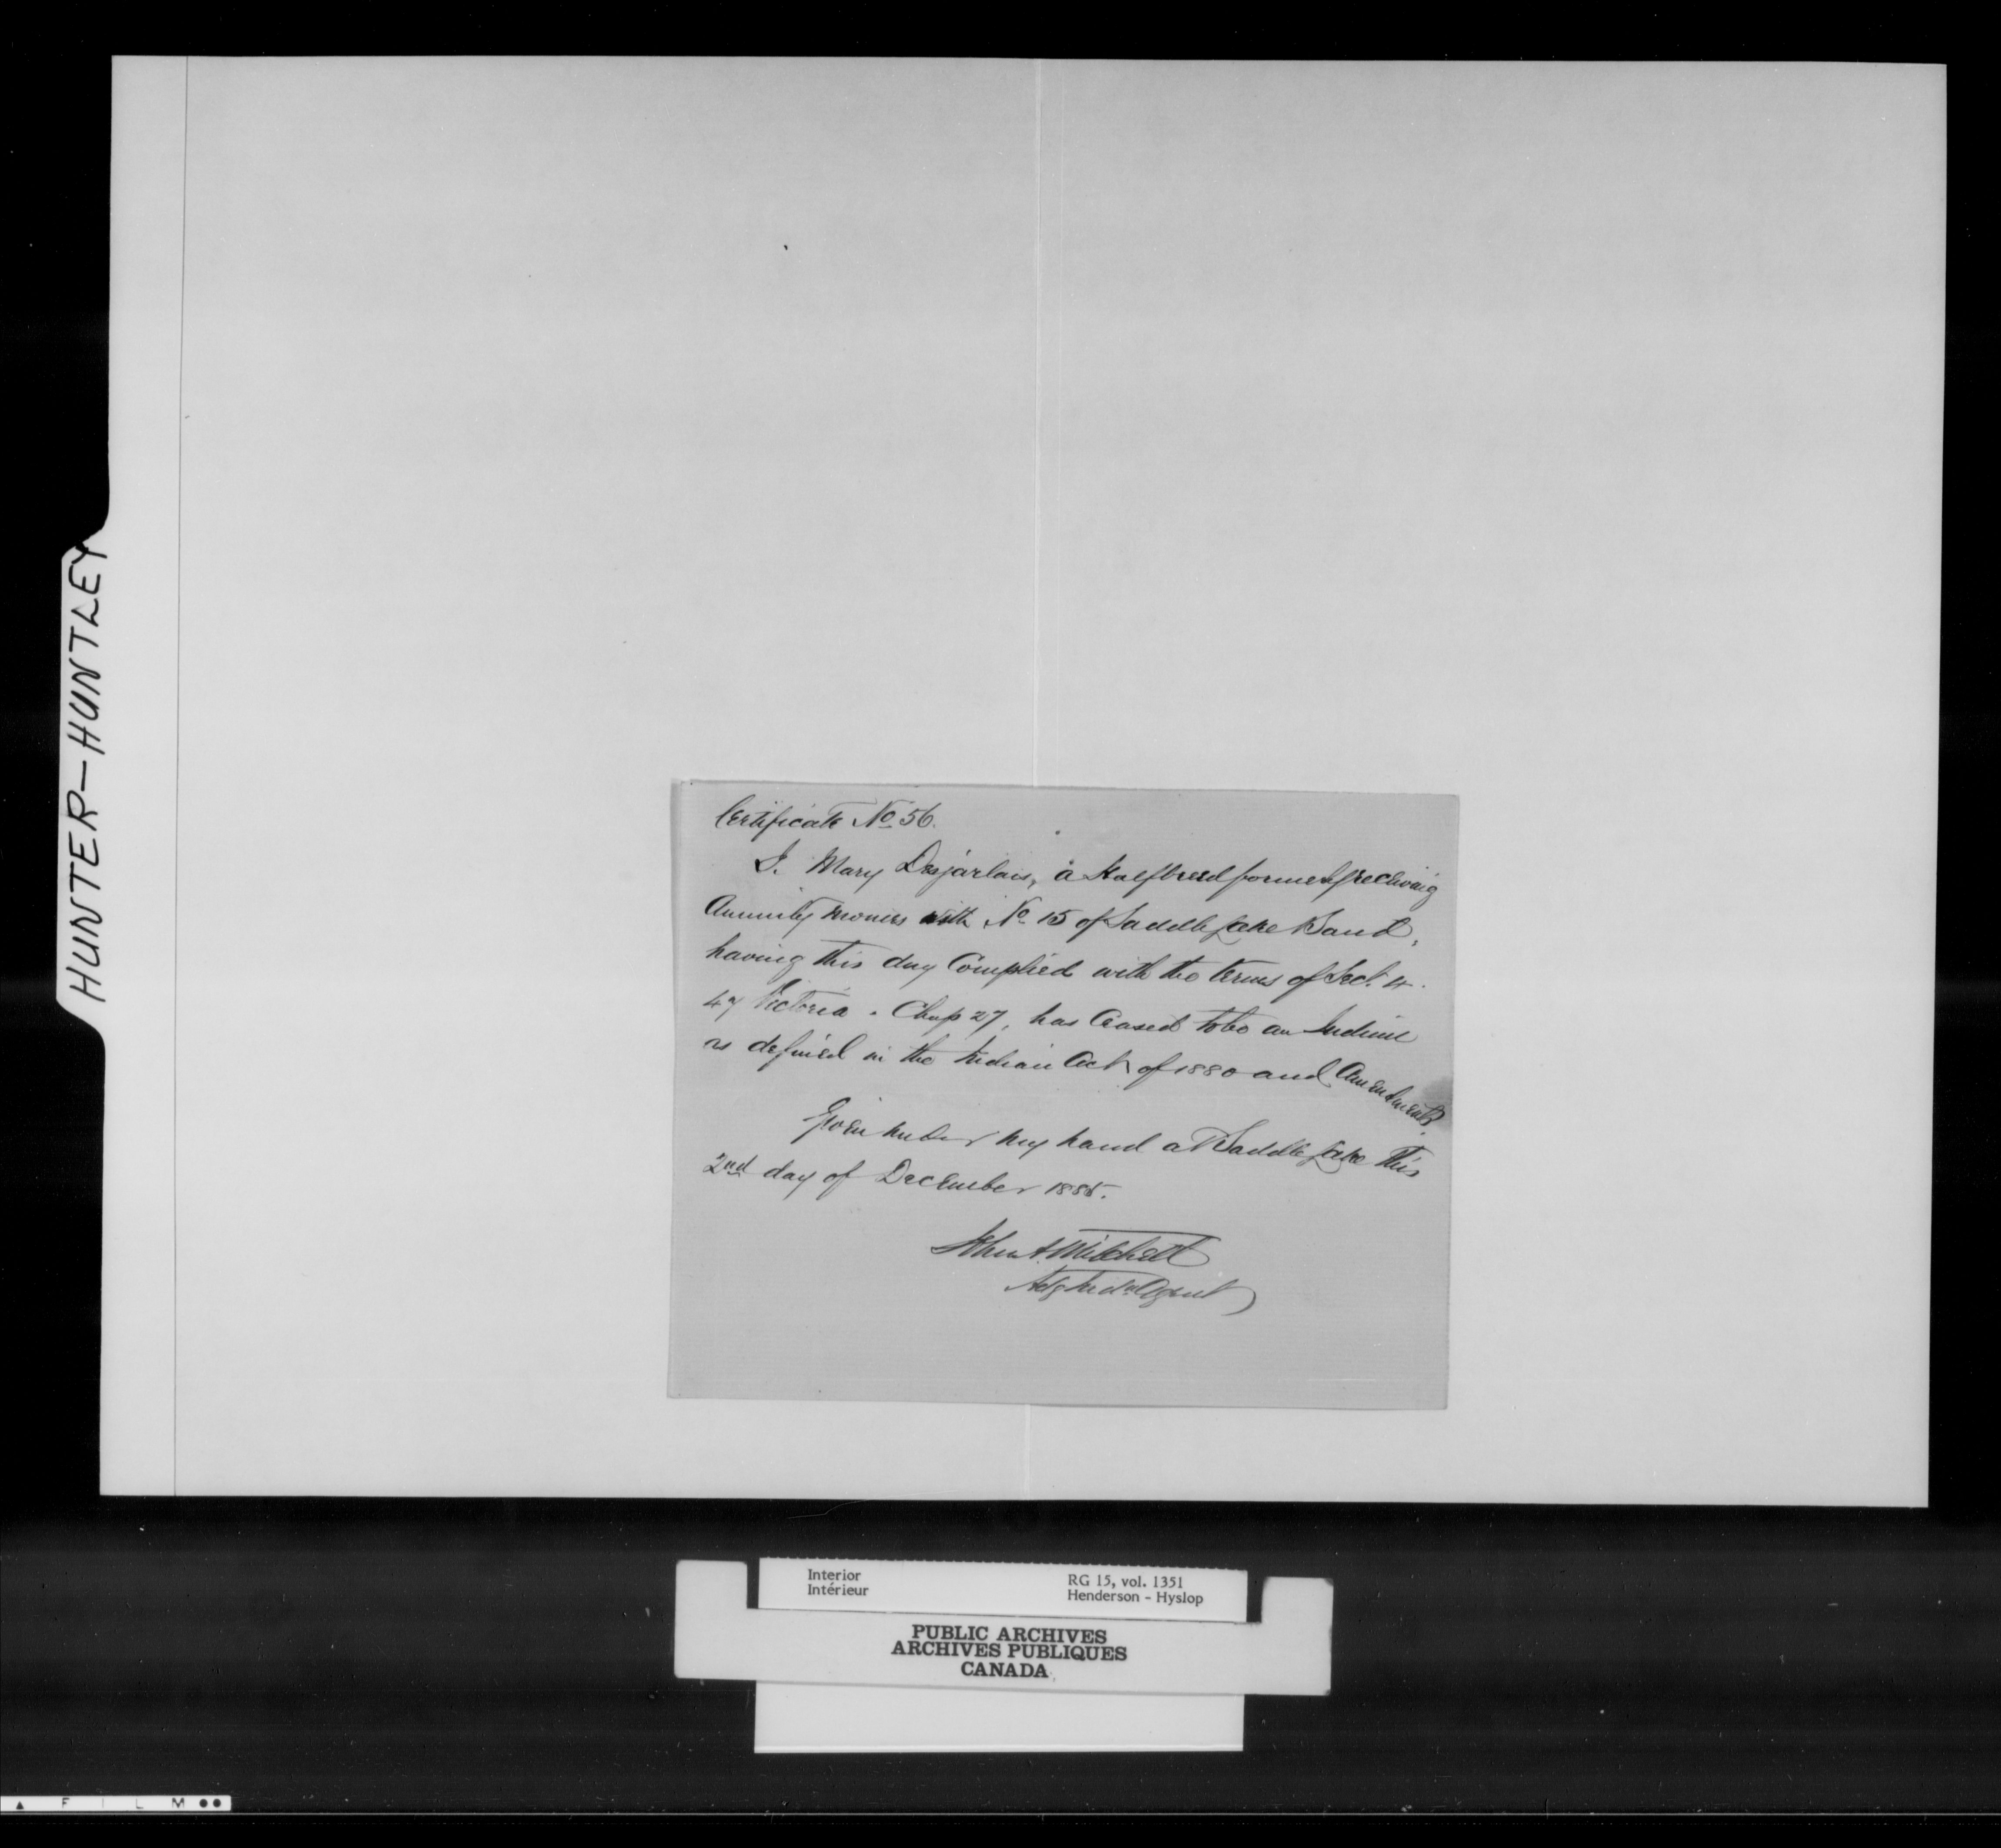 HUNTER-HUNTLEY
Certificate No 56.
I. Mary Desjarlais, a Halfbreed formerly receiving
Annuity monies with No 15 of Saddle Lake Band,
having this day Complied with the terms of Sect. 4.
47 Victoria. Chap 27, has Ceased to be an Indian
as defined in the Indian Act of 1880 and Amendments.
Given under my hand at Saddle Lake this
2nd day of December 1885.
John A. Mitchell
Actg Indn Agent
Interior
Intérieur
RG 15, vol. 1351
Henderson - Hyslop
PUBLIC ARCHIVES
ARCHIVES PUBLIQUES
CANADA
FILM